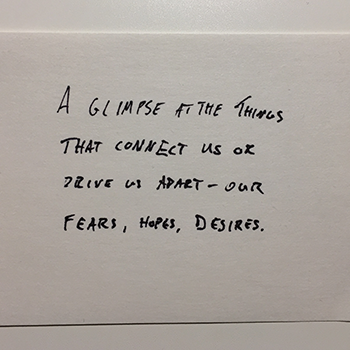 A GLIMPSE AT THE THINGS
THAT CONNECT US OR
DRIVE US APART - OUR
FEARS, HOPES, DESIRES.